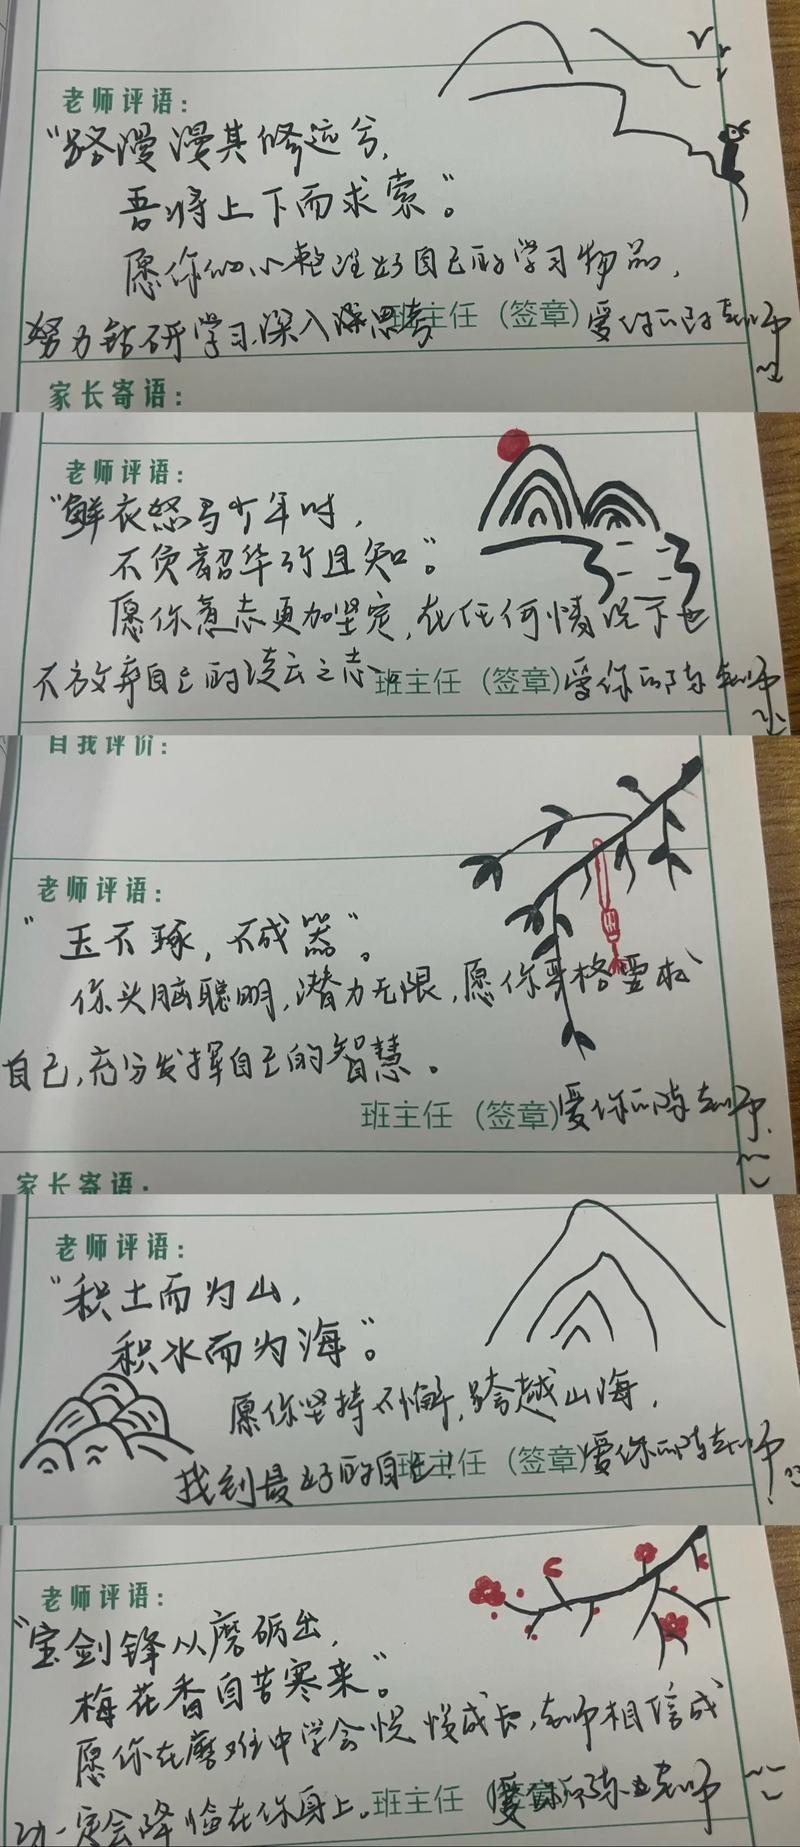 老师评语：
“路漫漫其修远兮，
吾将上下而求索”。
愿你细心整理好自己的学习物品，
努力钻研学习，深入思考
班主任（签章）爱你的陈老师
家长寄语：
老师评语：
“鲜衣怒马少年时，
不负韶华行且知”。
愿你意志更加坚定，在任何情况下也
不放弃自己的凌云之志。
班主任（签章）爱你的陈老师
自我评价：
老师评语：
“玉不琢，不成器”。
你头脑聪明，潜力无限，愿你严格要求
自己，充分发挥自己的智慧。
班主任（签章）爱你的陈老师
家长寄语：
老师评语：
“积土而为山，
积水而为海”。
愿你坚持不懈，跨越山海，
找到最好的自己！
班主任（签章）爱你的陈老师
老师评语：
“宝剑锋从磨砺出，
梅花香自苦寒来”。
愿你在磨难中学会慢慢成长，老师相信成
功一定会降临在你身上。
班主任 爱你的陈老师